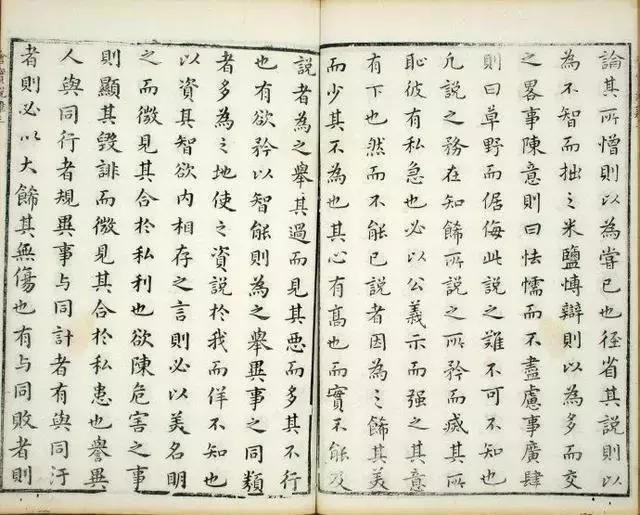 論其所憎則以為嘗已也径省其說則以
為不智而拙之米鹽博辯則以為多而交
之畧事陳意則曰怯懦而不盡慮事廣肆
則曰草野而倨侮此說之難不可不知也
凢說之務在知餙所說之所矜而滅其所
恥彼有私急也必以公義示而强之其意
有下也然而不能已說者因為之餙其美
而少其不為也其心有髙也而實不能及
說者為之舉其過而見其惡而多其不行
也有欲矜以智能則為之舉異事之同類
者多為之地使之資說於我而佯不知也
以資其智欲内相存之言則必以美名明
之而微見其合於私利也欲陳危害之事
則顯其毀誹而微見其合於私患也譽異
人與同行者規異事与同計者有與同汙
者則必以大餙其無傷也有与同敗者則